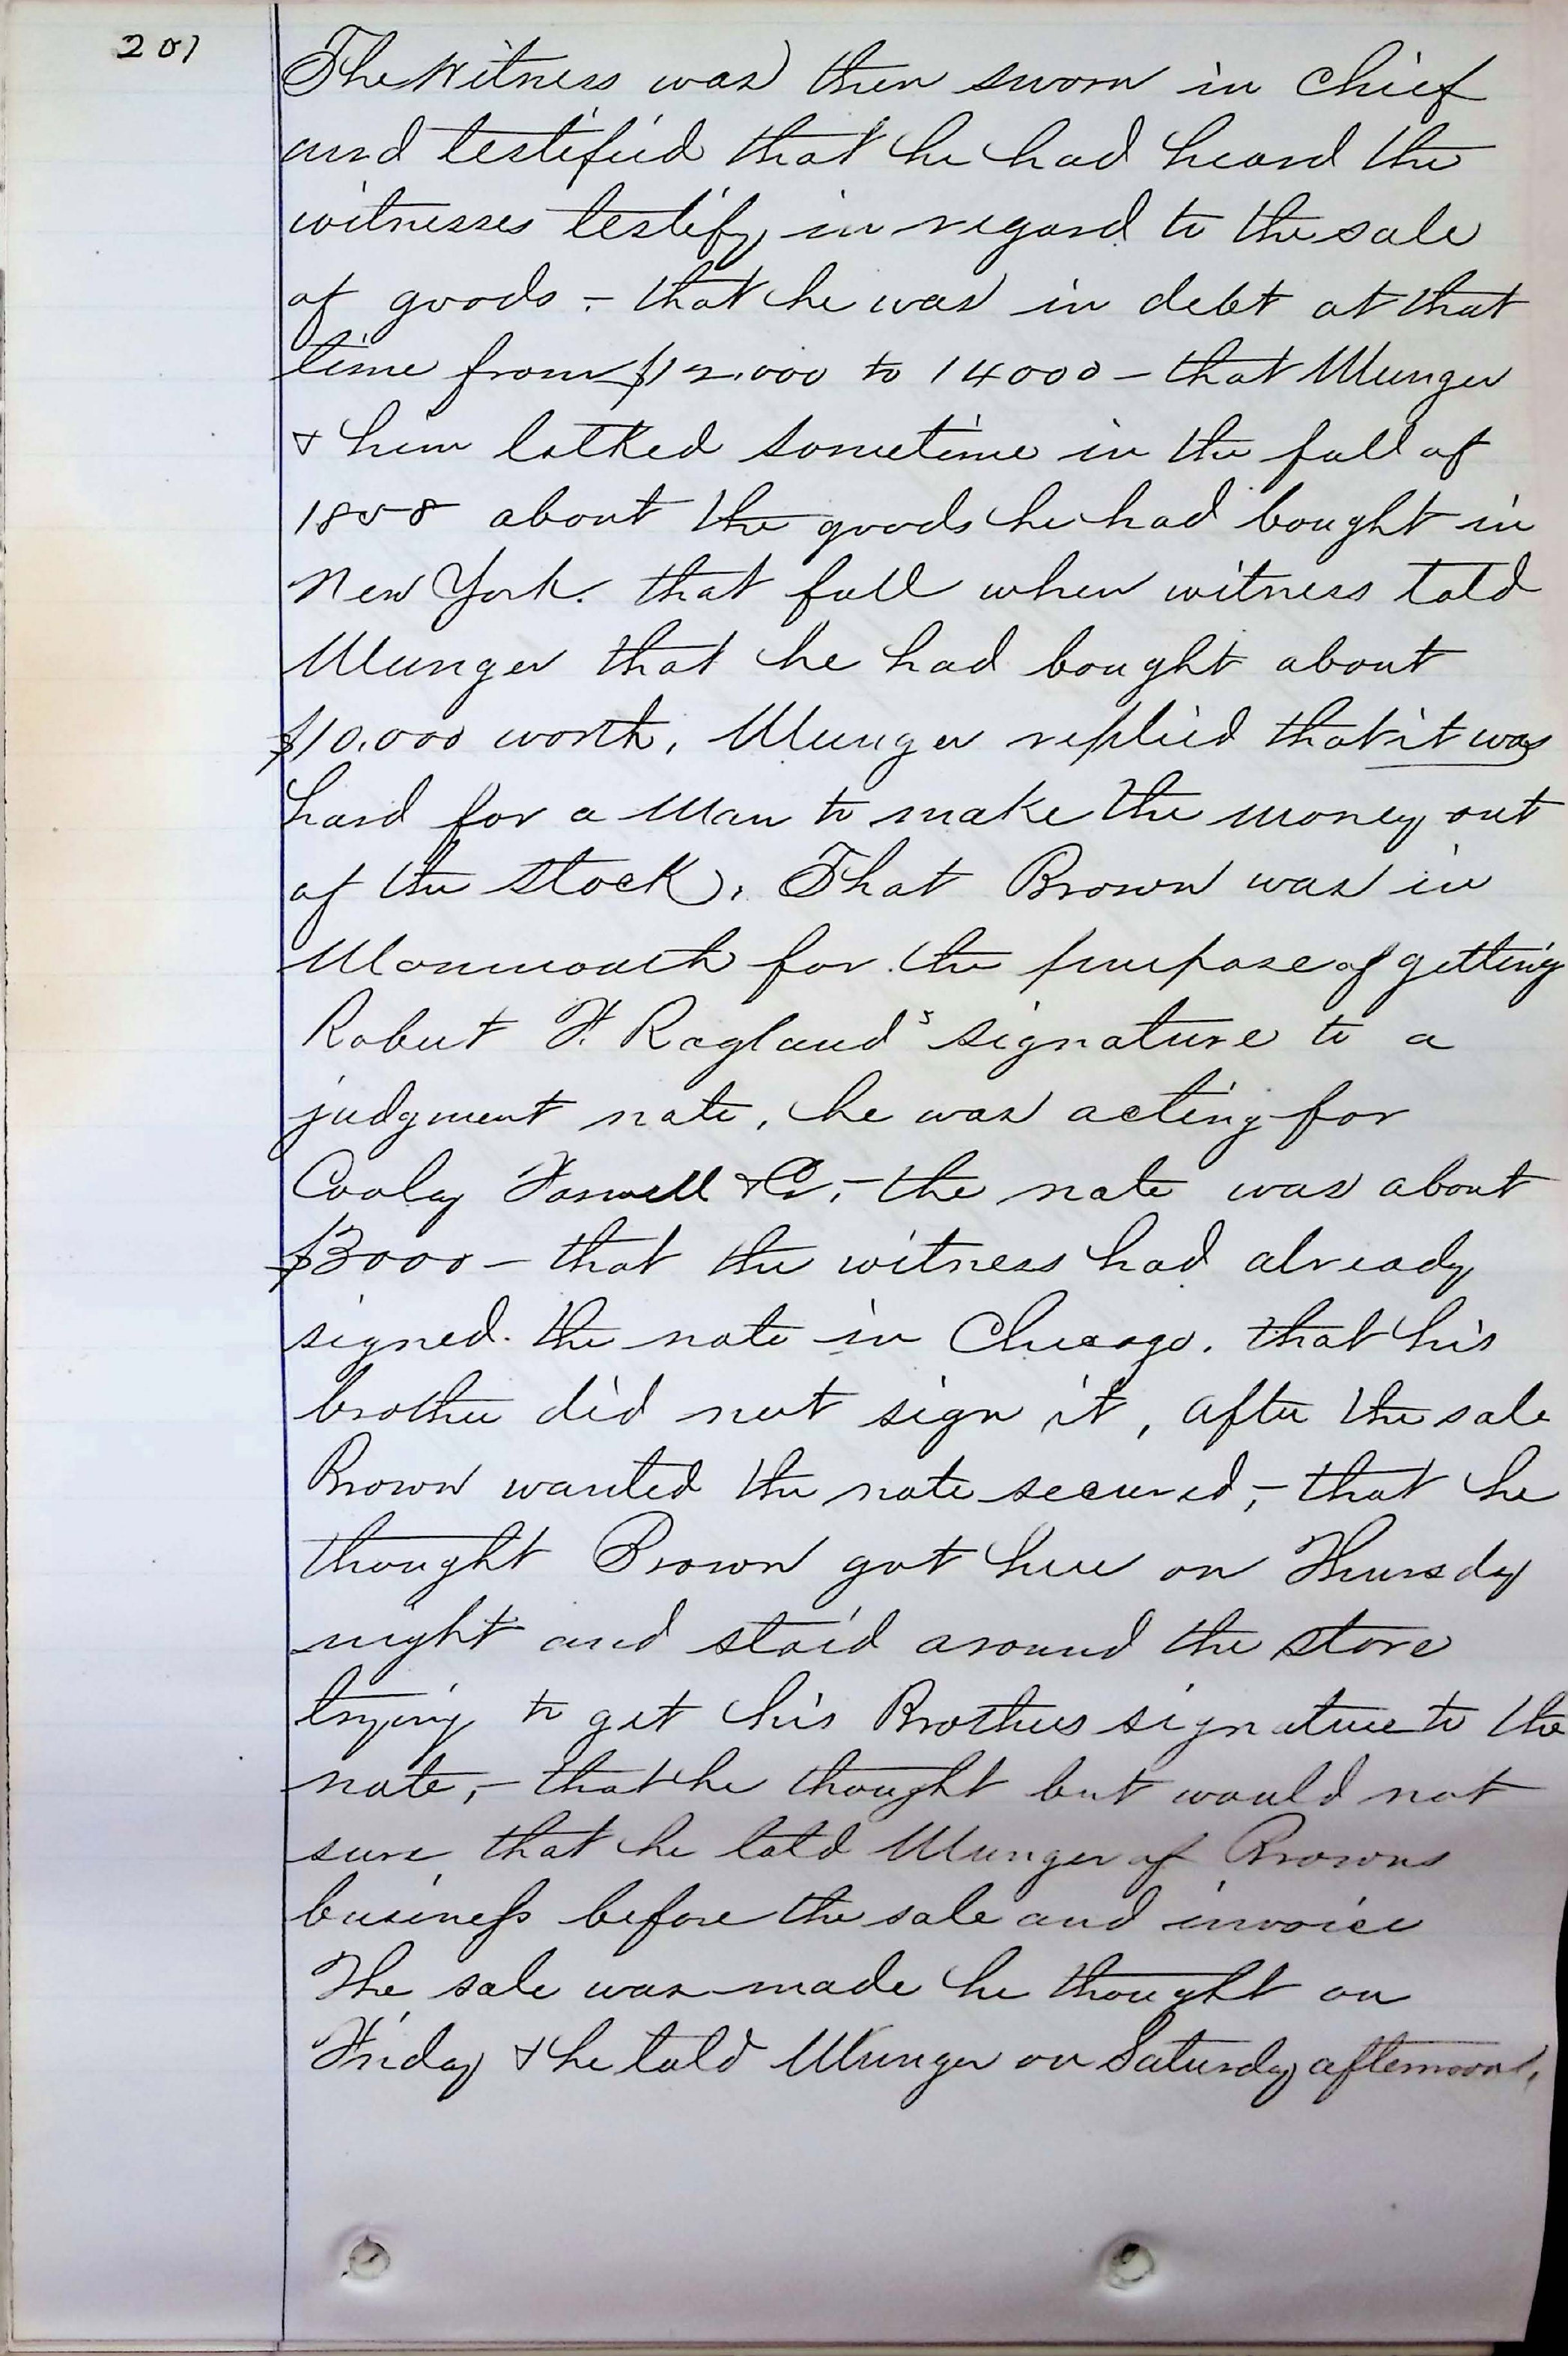 201
The Witness was then sworn in chief
and testified that he had heard the
witnesses testify in regard to the sale
of goods - that he was in debt at that
time from $12.000 to 14000 - that Munger
& him talked sometime in the fall of
1858 about the goods he had bought in
New York. that fall when witness told
Munger that he had bought about
$10.000 worth, Munger replied that it was
hard for a man to make the money out
of the stock, That Brown was in
Monmouth for the purpose of getting
Robert F. Ragland's signature to a
judgment note, he was acting for
Cooley Farwell & Co, - the note was about
$3000 - that the witness had already
signed the note in Chicago. that his
brother did not sign it, after the sale
Brown wanted the note secured, - that he
thought Brown got here on Thursdy
night and staid around the store
trying to get his Brothers signature to the
note, - that he thought but would not
sure that he told Munger of Browns
business before the sale and invoice
The sale was made he thought on
Friday & he told Munger on Saturday afternoon.